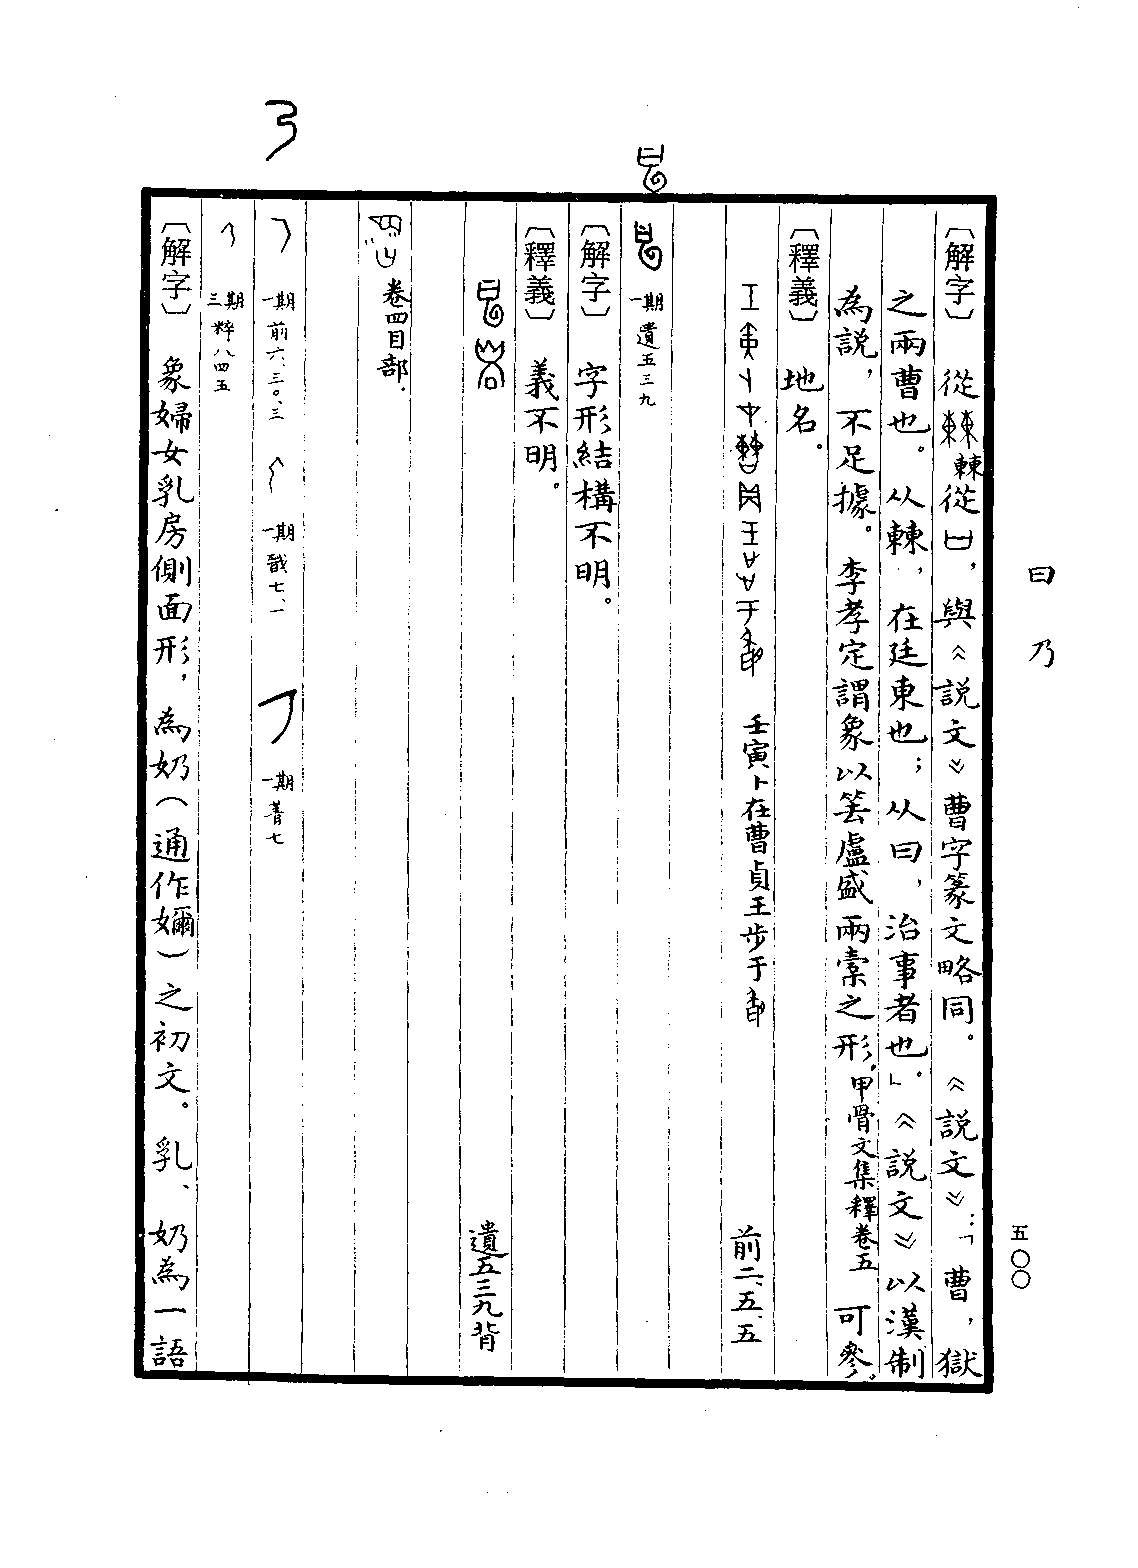 曰 乃
五〇〇
〔解字〕 從𣍘棘從口，與《說文》曹字篆文略同。《說文》：「曹，獄
之兩曹也。从棘，在廷東也；从曰，治事者也。」《說文》以漢制
為說，不足據。李孝定謂象以𥬔盧盛兩橐之形，甲骨文集釋卷五 可參。
〔釋義〕 地名。
壬寅卜在曹貞王步于 前二、五、五
一期 遺五三九
〔解字〕 字形結構不明。
〔釋義〕 義不明。
遺五三九背
卷四目部．
乃
一期 前六、三〇、三 一期 戩七、一 一期 菁七
三期 粹八四五
〔解字〕 象婦女乳房側面形，為奶（通作嬭）之初文。乳、奶為一語